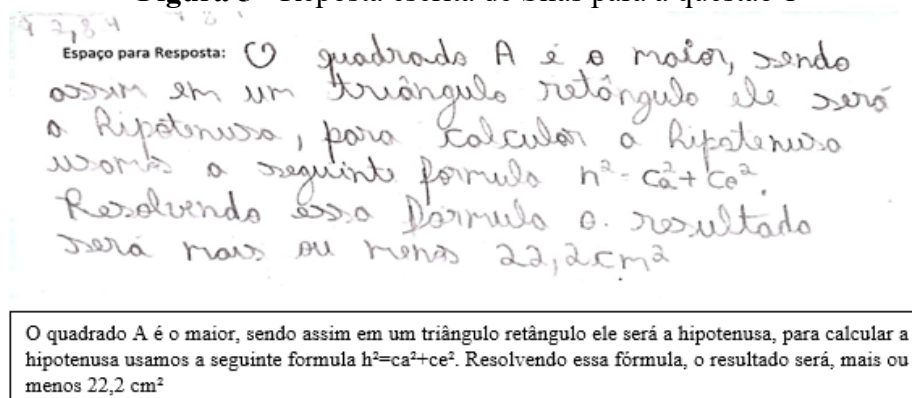 Espaço para Resposta: O quadrado A é o maior, sendo
assim em um triângulo retângulo ele será
a hipotenusa, para calcular a hipotenusa
usamos a seguinte formula h²=ca²+ce².
Resolvendo essa fórmula o resultado
será mais ou menos 22,2 cm²
O quadrado A é o maior, sendo assim em um triângulo retângulo ele será a hipotenusa, para calcular a
hipotenusa usamos a seguinte formula h²=ca²+ce². Resolvendo essa fórmula, o resultado será, mais ou
menos 22,2 cm²